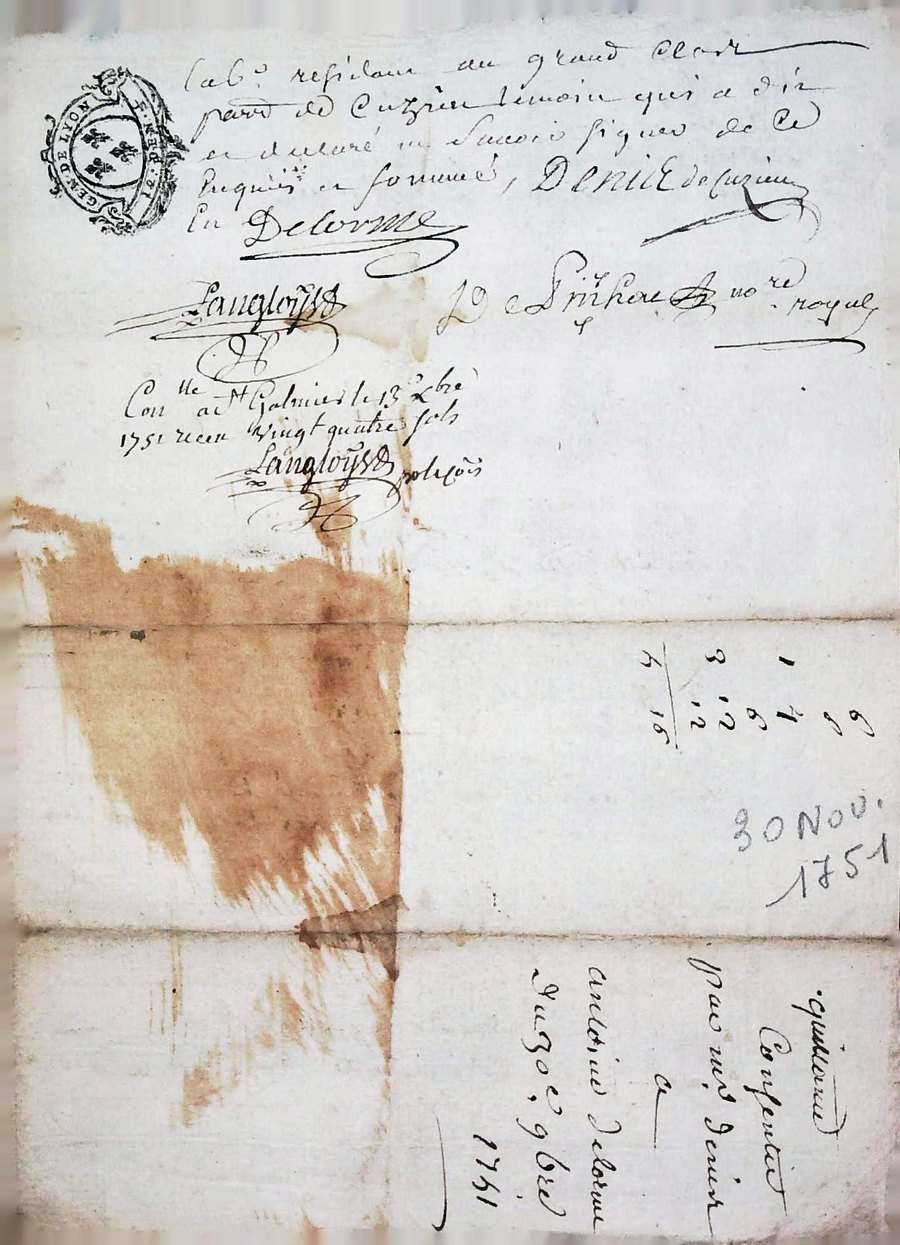 GEN. DE LYON
labr residant au grand Clair
parr de Cuzieu temoin qui a dit
et declaré ne Scavoir signer de Ce
Enquis et sommé, Denis de Cuzieu
En Delorme
Langloys
De nore royal
Conlle a St Galmier le 13e Xbre
1751 receu Vingt quatre sols
Langloys
6
8
1 4
6
3 12
12
4 16
30 Nov.
1751
quittance
Consentie
par mr. denis
a
antoine delorme
Du 30e. 9bre
1751